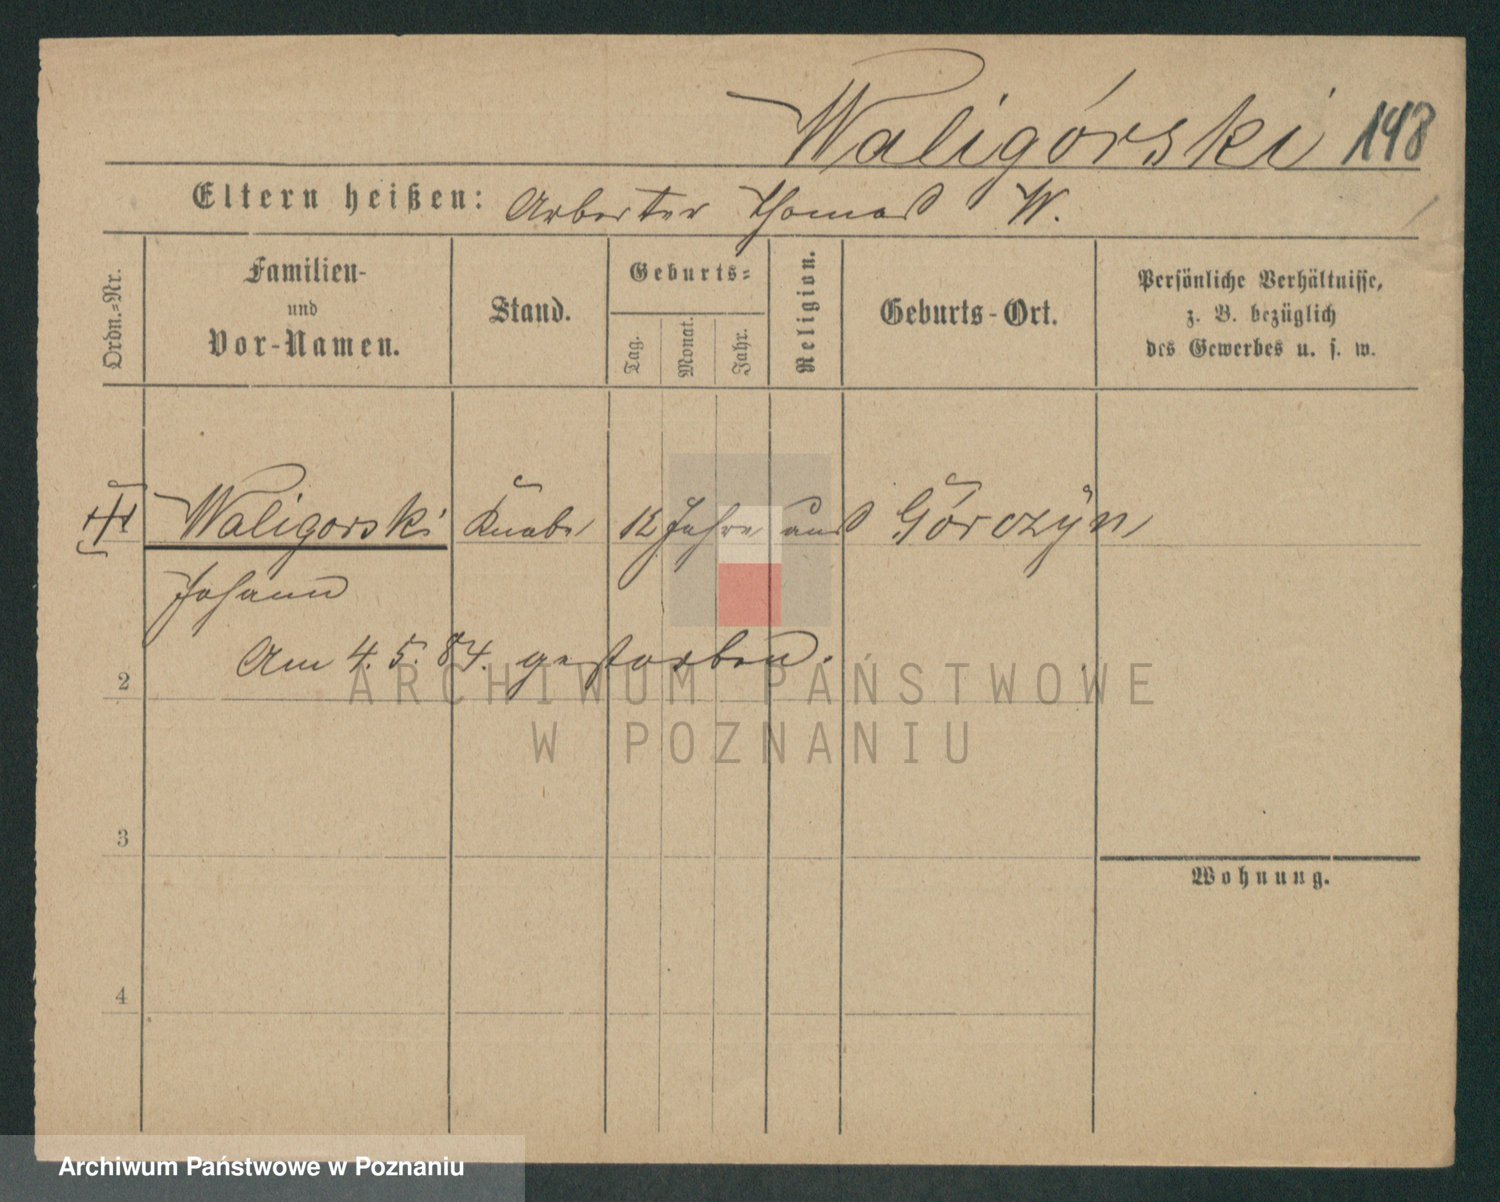 Waligórski 148
Eltern heißen: Arbeiter Thomas W.
Ordn.-Nr.
Familien-
und
Vor-Namen.
Stand.
Geburts-
Tag.
Monat.
Jahr.
Religion.
Geburts-Ort.
Persönliche Verhältnisse,
z. B. bezüglich
des Gewerbes u. s. w.
Waligorski Knabe 12 Jahre aus Görczyn
Johann
Am 4. 5. 84. gestorben.
2
ARCHIWUM PAŃSTWOWE
W POZNANIU
3
Wohnung.
4
Archiwum Państwowe w Poznaniu